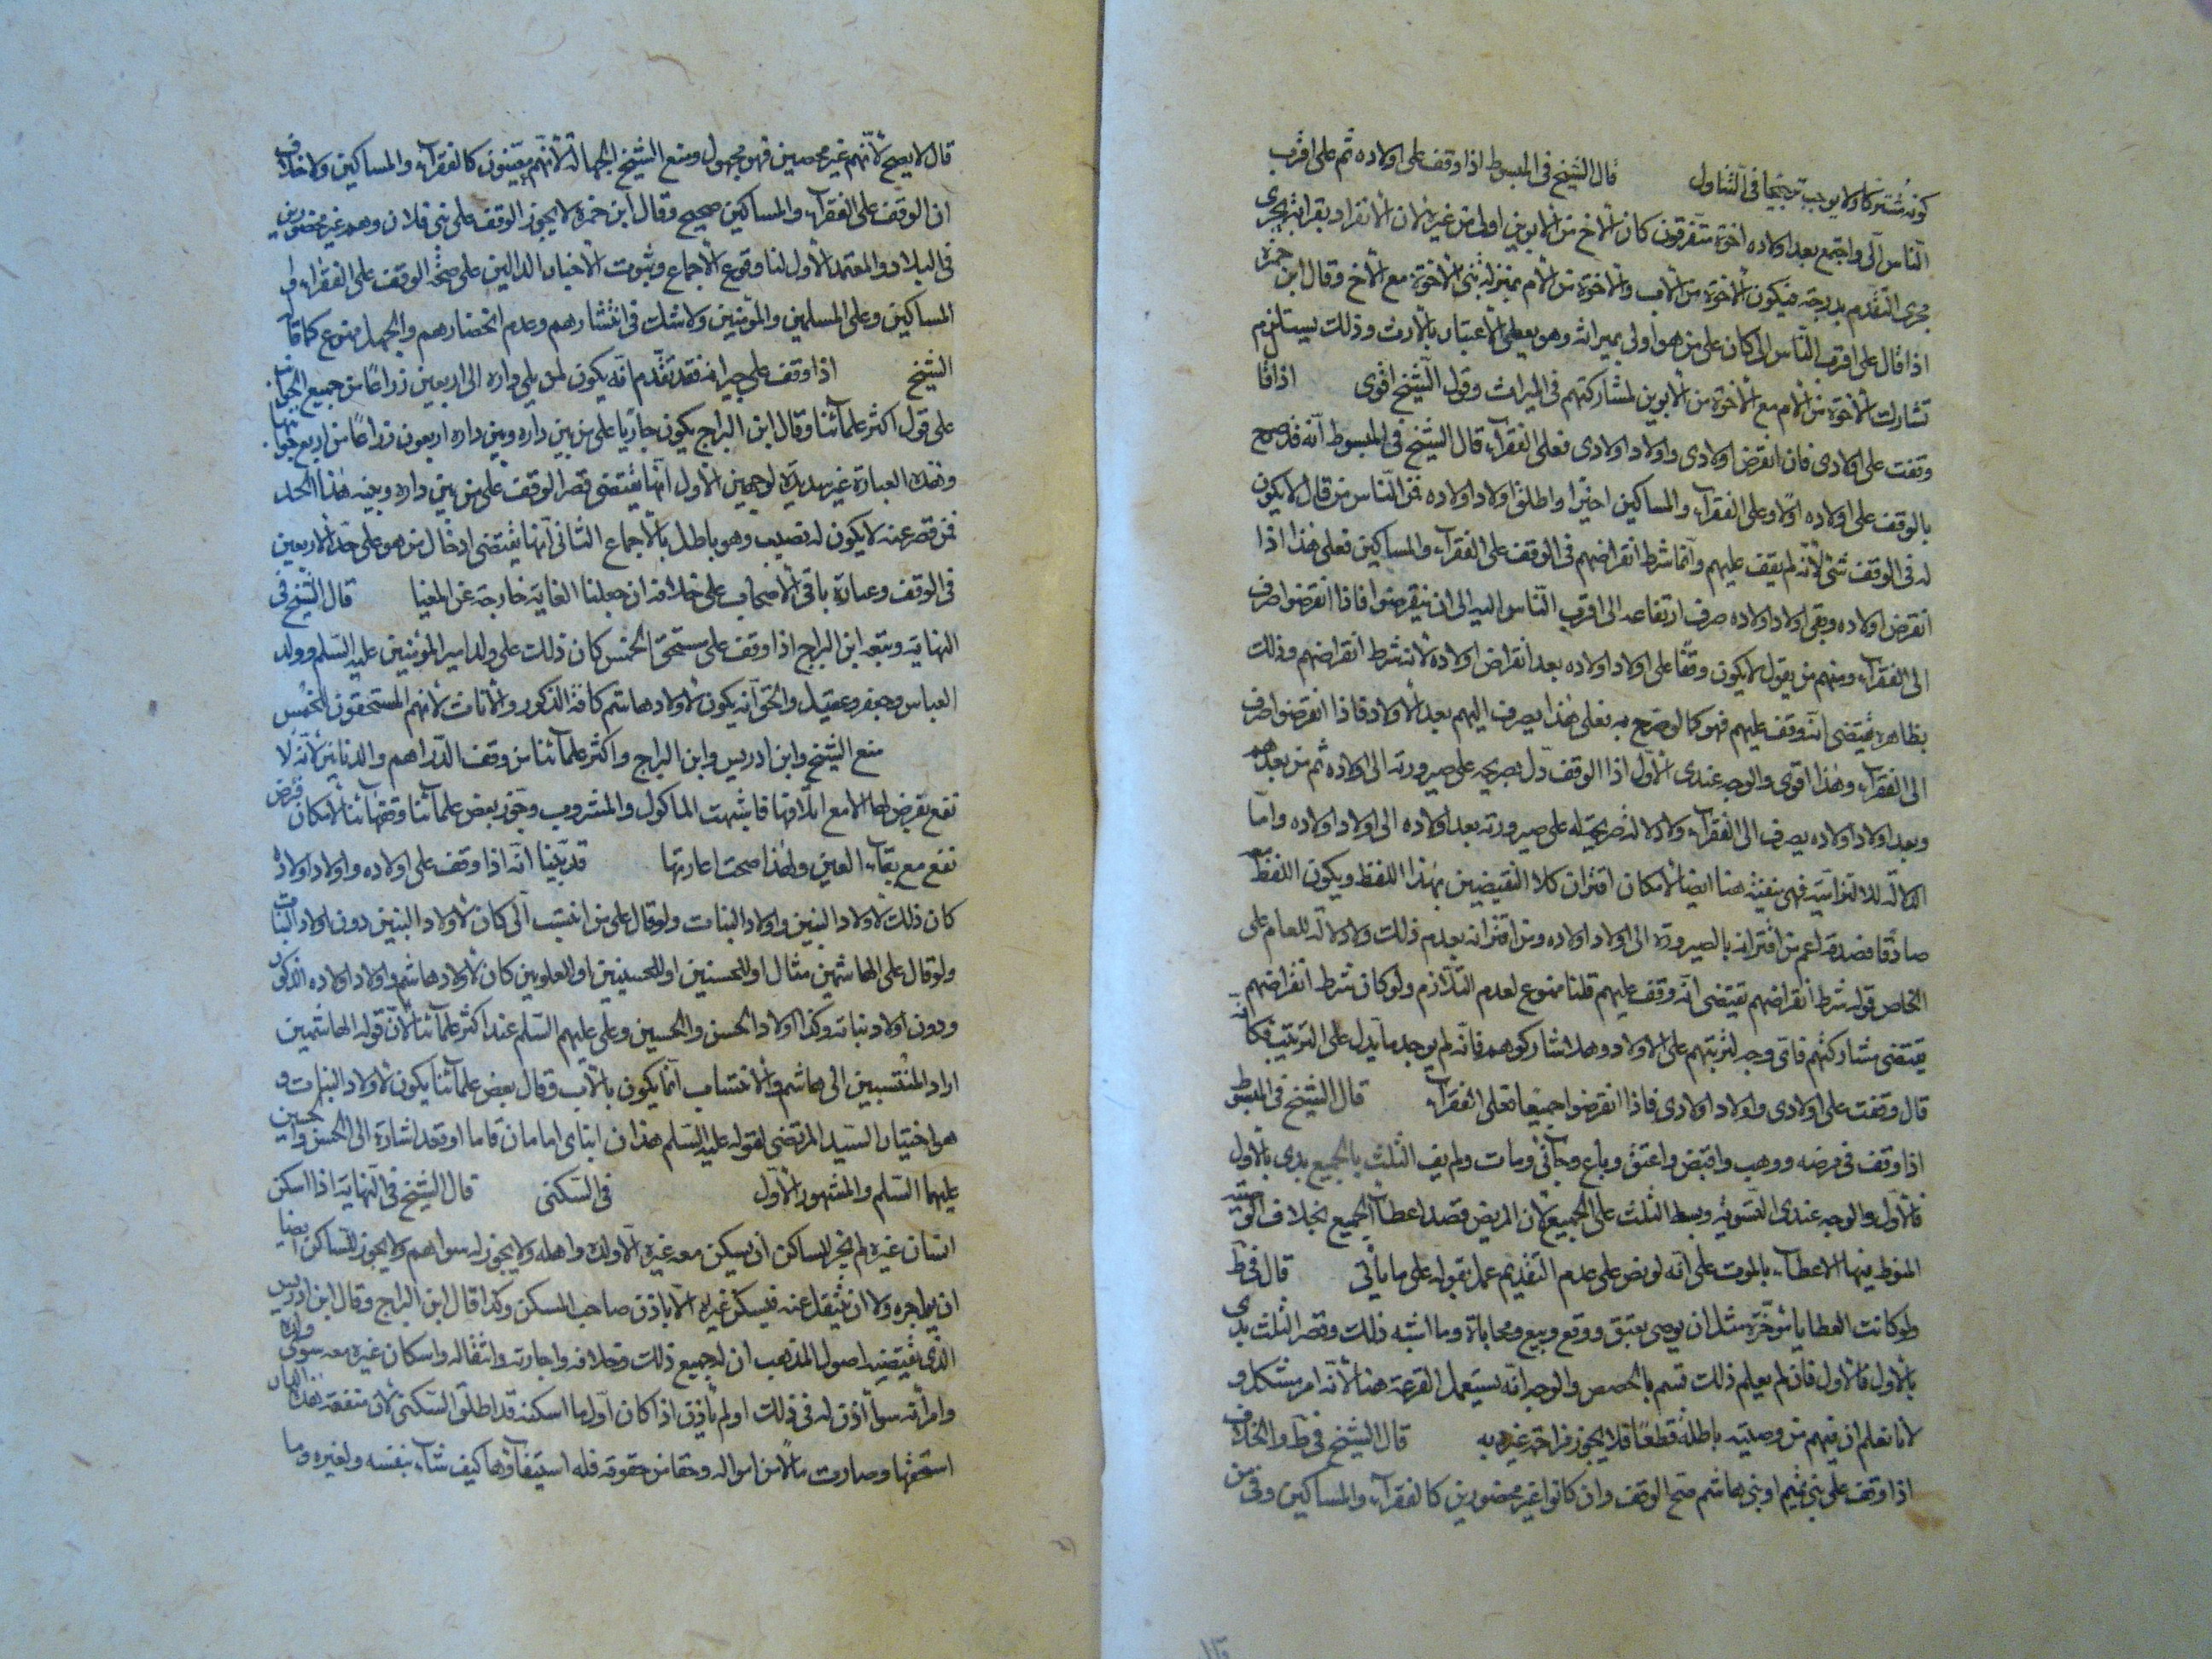 كونه مشتركا ولا يوجب ترجيحا في التناول قال الشيخ في المبسوط اذا وقف على اولاده ثم على اقرب
الناس الى واجتمع بعد اولاده اخوة متفرقون كان الاخ من الابوين اولى من غيره لان الانفراد بقرابة يجرى
مجرى التقدم بدرجة فيكون الاخوة من الاب والاخوة من الام بمنزلة بنى الاخوة مع الاخ وقال ابن حمزة
اذا قال على اقرب الناس الى كان على من هو اولى بميراثه وهو يعطى الاعتبار بالارث وذلك يستلزم
تشارك الاخوة من الام مع الاخوة من الابوين لمشاركتهم في الميراث وقول الشيخ اقوى اذا قا
وقفت على اولادى فان انقرض اولادى واولاد اولادى فعلى الفقراء قال الشيخ في المبسوط انه قد صرح
بالوقف على اولاده اولا وعلى الفقراء والمساكين اخيرا واطلق اولاد اولاده فمن الناس من قال لا يكون
له في الوقف شئ لانه لم يقف عليهم وانما شرط انقراضهم في الوقف على الفقراء والمساكين فعلى هذا اذا
انقرض اولاده وبقى اولاد اولاده صرف ارتفاعه الى اقرب الناس اليه الى ان ينقرضوا فاذا انقرضوا صرف
الى الفقراء ومنهم من يقول لا يكون وقفا على اولاد اولاده بعد انقراض اولاده لانه شرط انقراضهم وذلك
بظاهره يقتضى انه وقف عليهم فهو كما لو صرح به فعلى هذا يصرف اليهم بعد الاولاد فاذا انقرضوا صرف
الى الفقراء وهذا اقوى والوجه عندى الاول اذا الوقف دل بصريحه على صيرورته الى اولاده ثم من بعدهم
وبعد اولاد اولاده يصرف الى الفقراء ولا دلالة صريحية له على صيرورته بعد اولاده الى اولاد اولاده واما
الدلالة الالتزامية فهى منفية هنا ايضا لامكان اقتران كلا النقيضين بهذا اللفظ ويكون اللفظ معه
صادقا فصدقه اعم من اقترانه بالصيرورة الى اولاد اولاده ومن اقترانه بعدم ذلك ولا دلالة للعام على
الخاص قوله شرط انقراضهم يقتضى انه وقف عليهم قلنا ممنوع لعدم التلازم ولو كان شرط انقراضهم
يقتضى مشاركتهم فاى وجه لترتبهم على الاولاد وهلا شاركوهم فانه لم يوجد ما يدل على الترتيب فكانه
قال وقفت على اولادى واولاد اولادى فاذا انقرضوا جميعا فعلى الفقراء قال الشيخ في المبسوط
اذا وقف في مرضه ووهب واقبض واعتق وباع وحابى ومات ولم يف الثلث بالجميع بدى بالاول
فالاول والوجه عندى التسوية وبسط الثلث على الجميع لان المريض قصد اعطاء الجميع بخلاف الوصية
المنوط فيها الاعطاء بالموت على انه لو نص على عدم التقديم عمل بقوله على ما ياتى قال في ط
ولو كانت العطايا مؤخرة مثل ان يوصى بعتق ووقع وبيع ومحاباة وما اشبه ذلك وقصر الثلث بدى
بالاول فالاول فان لم يعلم ذلك قسم بالحصص والوجه انه يستعمل القرعة هنا لانه امر مشكل و
لانا نعلم ان فيهم من وصيته باطلة قطعا فلا يجوز مزاحمة غيره به قال الشيخ في ط والخلاف
اذا وقف على بنى تميم او بنى هاشم صح الوقف وان كانوا غير محصورين كالفقراء والمساكين وفي من
قال لا يصح لانهم غير محصين فهو مجهول ومنع الشيخ الجهالة لانهم معينون كالفقراء والمساكين ولا خلاف
ان الوقف على الفقراء والمساكين صحيح وقال ابن حمزة لا يجوز الوقف على بنى فلان وهم غير محصورين
في البلاد والمعتمد الاول لنا وقوع الاجماع وثبوت الاخبار الدالين على صحة الوقف على الفقراء و
المساكين وعلى المسلمين والمؤمنين ولا شك في انتشارهم وعدم انحصارهم والجهل ممنوع كما قاله
الشيخ اذا وقف على جيرانه فقد تقدم انه يكون لمن يلى داره الى اربعين ذراعا من جميع الجوانب
على قول اكثر علمائنا وقال ابن البراج يكون جاريا على من بين داره وبين داره اربعون ذراعا من اربع جوانبها
وهذه العبارة غير سديدة لوجهين الاول انها يقتضى قصر الوقف على من بين داره وبينه هذا الحد
فمن قصر عنه لا يكون له نصيب وهو باطل بالاجماع الثانى انها يقتضى ادخال من هو على حد الاربعين
في الوقف وعبارة باقى الاصحاب على خلافه ان جعلنا الغاية خارجة عن المغيا قال الشيخ في
النهاية وتبعه ابن البراج اذا وقف على مستحقى الخمس كان ذلك على ولد امير المؤمنين عليه السلم وولد
العباس وجعفر وعقيل والحق انه يكون لاولاد هاشم كافة الذكور والاناث لانهم المستحقون للخمس
منع الشيخ وابن ادريس وابن البراج واكثر علمائنا من وقف الدراهم والدنانير لانه لا
نفع يفرض لها الا مع اتلافها فاشبهت الماكول والمشروب وجوز بعض علمائنا وفقهائنا لامكان فرض
نفع مع بقاء العين ولهذا صحت اعارتها قد بينا انه اذا وقف على اولاده واولاد اولاده
كان ذلك لاولاد البنين واولاد البنات ولو قال على من انتسب الى كان لاولاد البنين دون اولاد البنات
ولو قال على الهاشمين مثال او للحسنين او للحسينيين او العلويين كان لاولاد هاشم واولاد اولاده الذكور
ودون اولاد بناته وكذا اولاد الحسن والحسين وعلى عليهم السلم عند اكثر علمائنا لان قوله الهاشمين
اراد المنتسبين الى هاشم والانتساب انما يكون بالاب وقال بعض علمائنا يكون لاولاد البنات و
هو اختيار السيد المرتضى لقوله عليه السلم هذان ابناى امامان قاما او قعدا اشارة الى الحسن والحسين
عليهما السلم والمشهور الاول في السكنى قال الشيخ في النهاية اذا اسكن
انسان غيره لم يجز للساكن ان يسكن معه غيره الا ولده واهله ولا يجوز له سواهم ولا يجوز للساكن ايضا
ان يواجره ولا ان ينتقل عنه فيسكن غيره الا باذن صاحب المسكن وكذا قال ابن البراج وقال ابن ادريس
الذى يقتضيه اصول المذهب ان له جميع ذلك وخلافه واجارته وانتقاله واسكان غيره معه سوى ولده
وامرأته سواء اذن له في ذلك او لم ياذن اذا كان اول ما اسكنه قد اطلق السكنى لان منفعة هذه الدار
استحقها وصارت مالا من امواله وحقا من حقوقه فله استيفاؤها كيف شاء بنفسه ولغيره وما